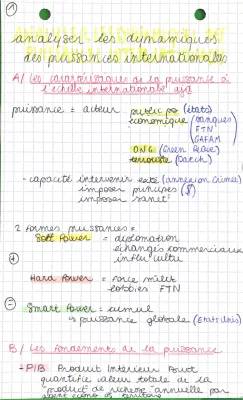 1
analyser les dynamiques
des puissances internationales
A/ Les caractéristiques de la puissance à
l'échelle internationale ajd
puissance = acteur public (états)
économique (banques
FTN
GAFAM
ONG (Green Peace)
terroriste (Daech)
- capacité intervenir exté (annexion Crimée)
imposer principes ($)
imposer sanct°
2 formes puissances =
Soft Power = diplomation
échanges commerciaux
influ cultu
+
Hard Power = Force milit
lobbies FTN
=
Smart Power = cumul
puissance globale (états Unis)
B/ Les fondements de la puissance
- PIB Produit Intérieur Brut
quantifie valeur totale de la
"product° de richesse" annuelle par
agent écono ds territoire